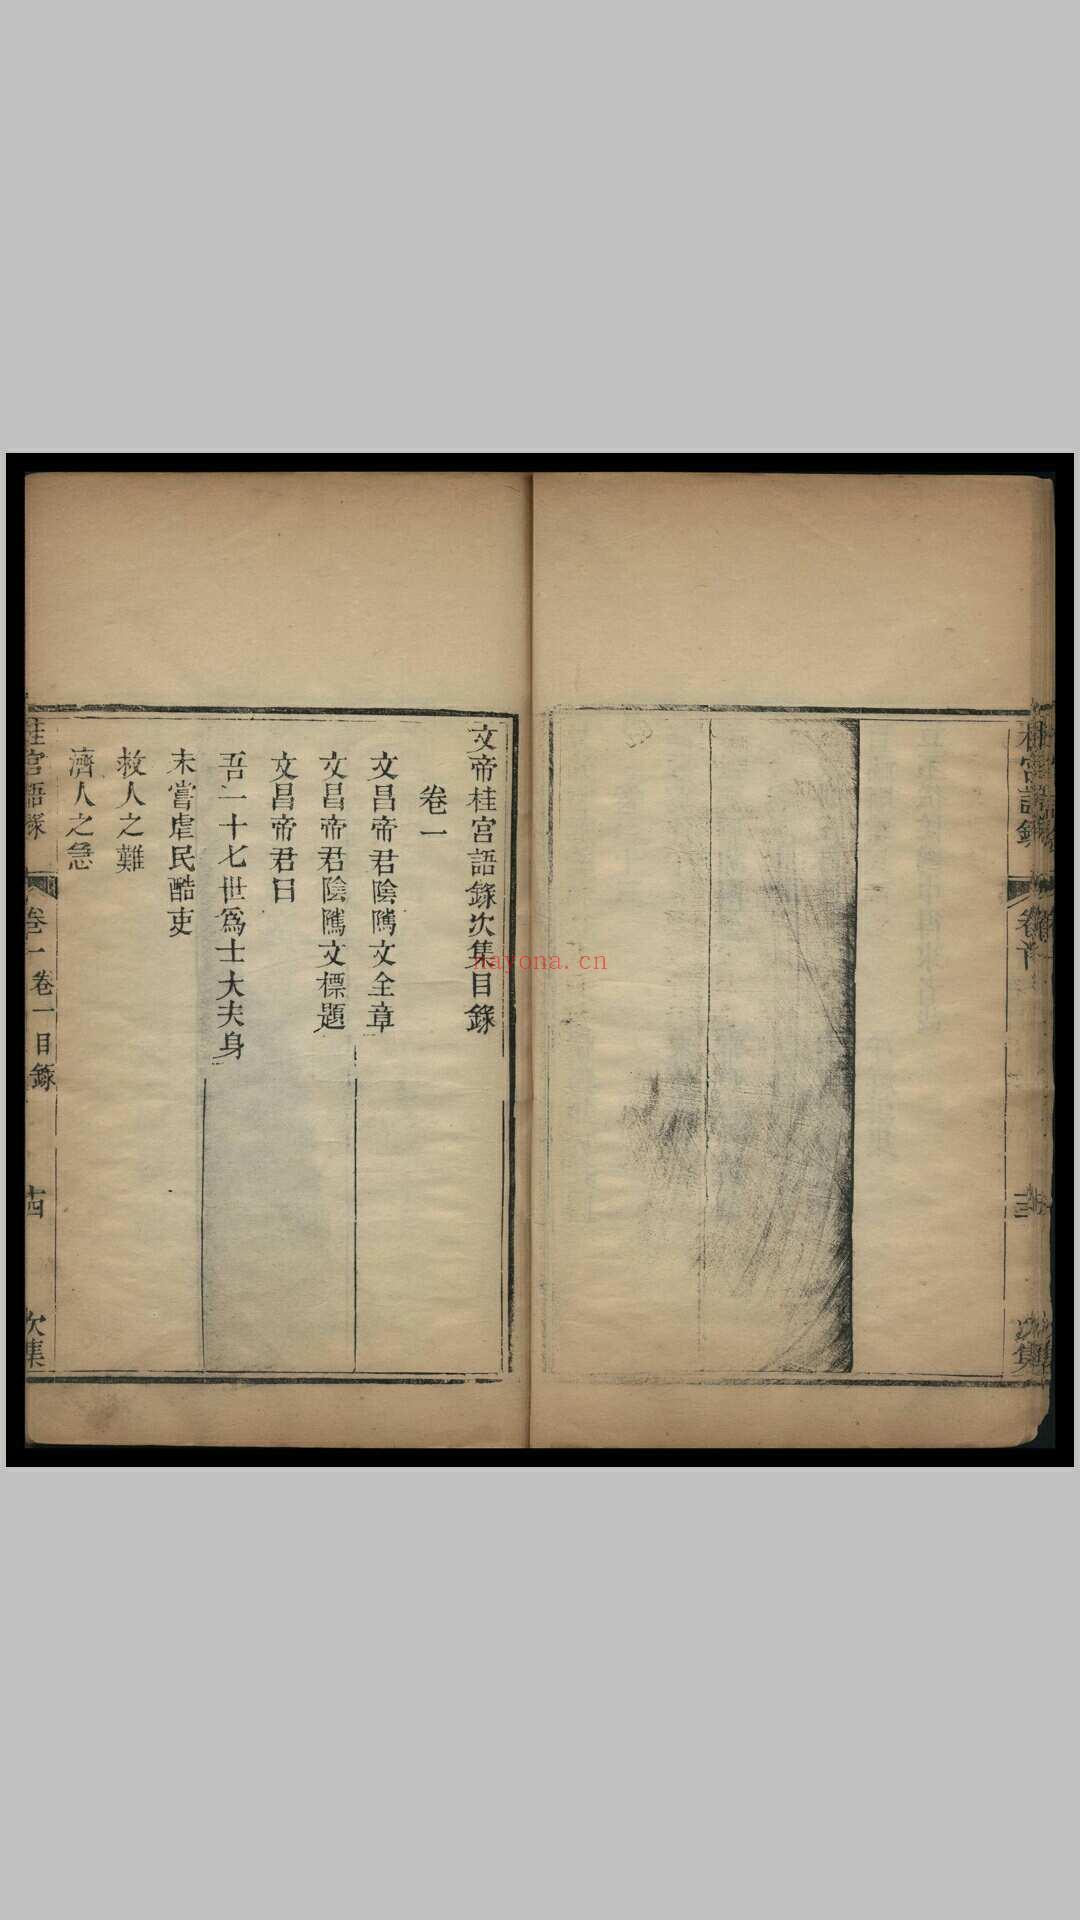 文帝桂宮語錄次集目錄
卷一
文昌帝君陰隲文全章
文昌帝君陰隲文標題
文昌帝君曰
吾一十七世爲士大夫身
未嘗虐民酷吏
救人之難
濟人之急
桂宮語錄
卷一
卷一目錄
十四
次集
nayona.cn